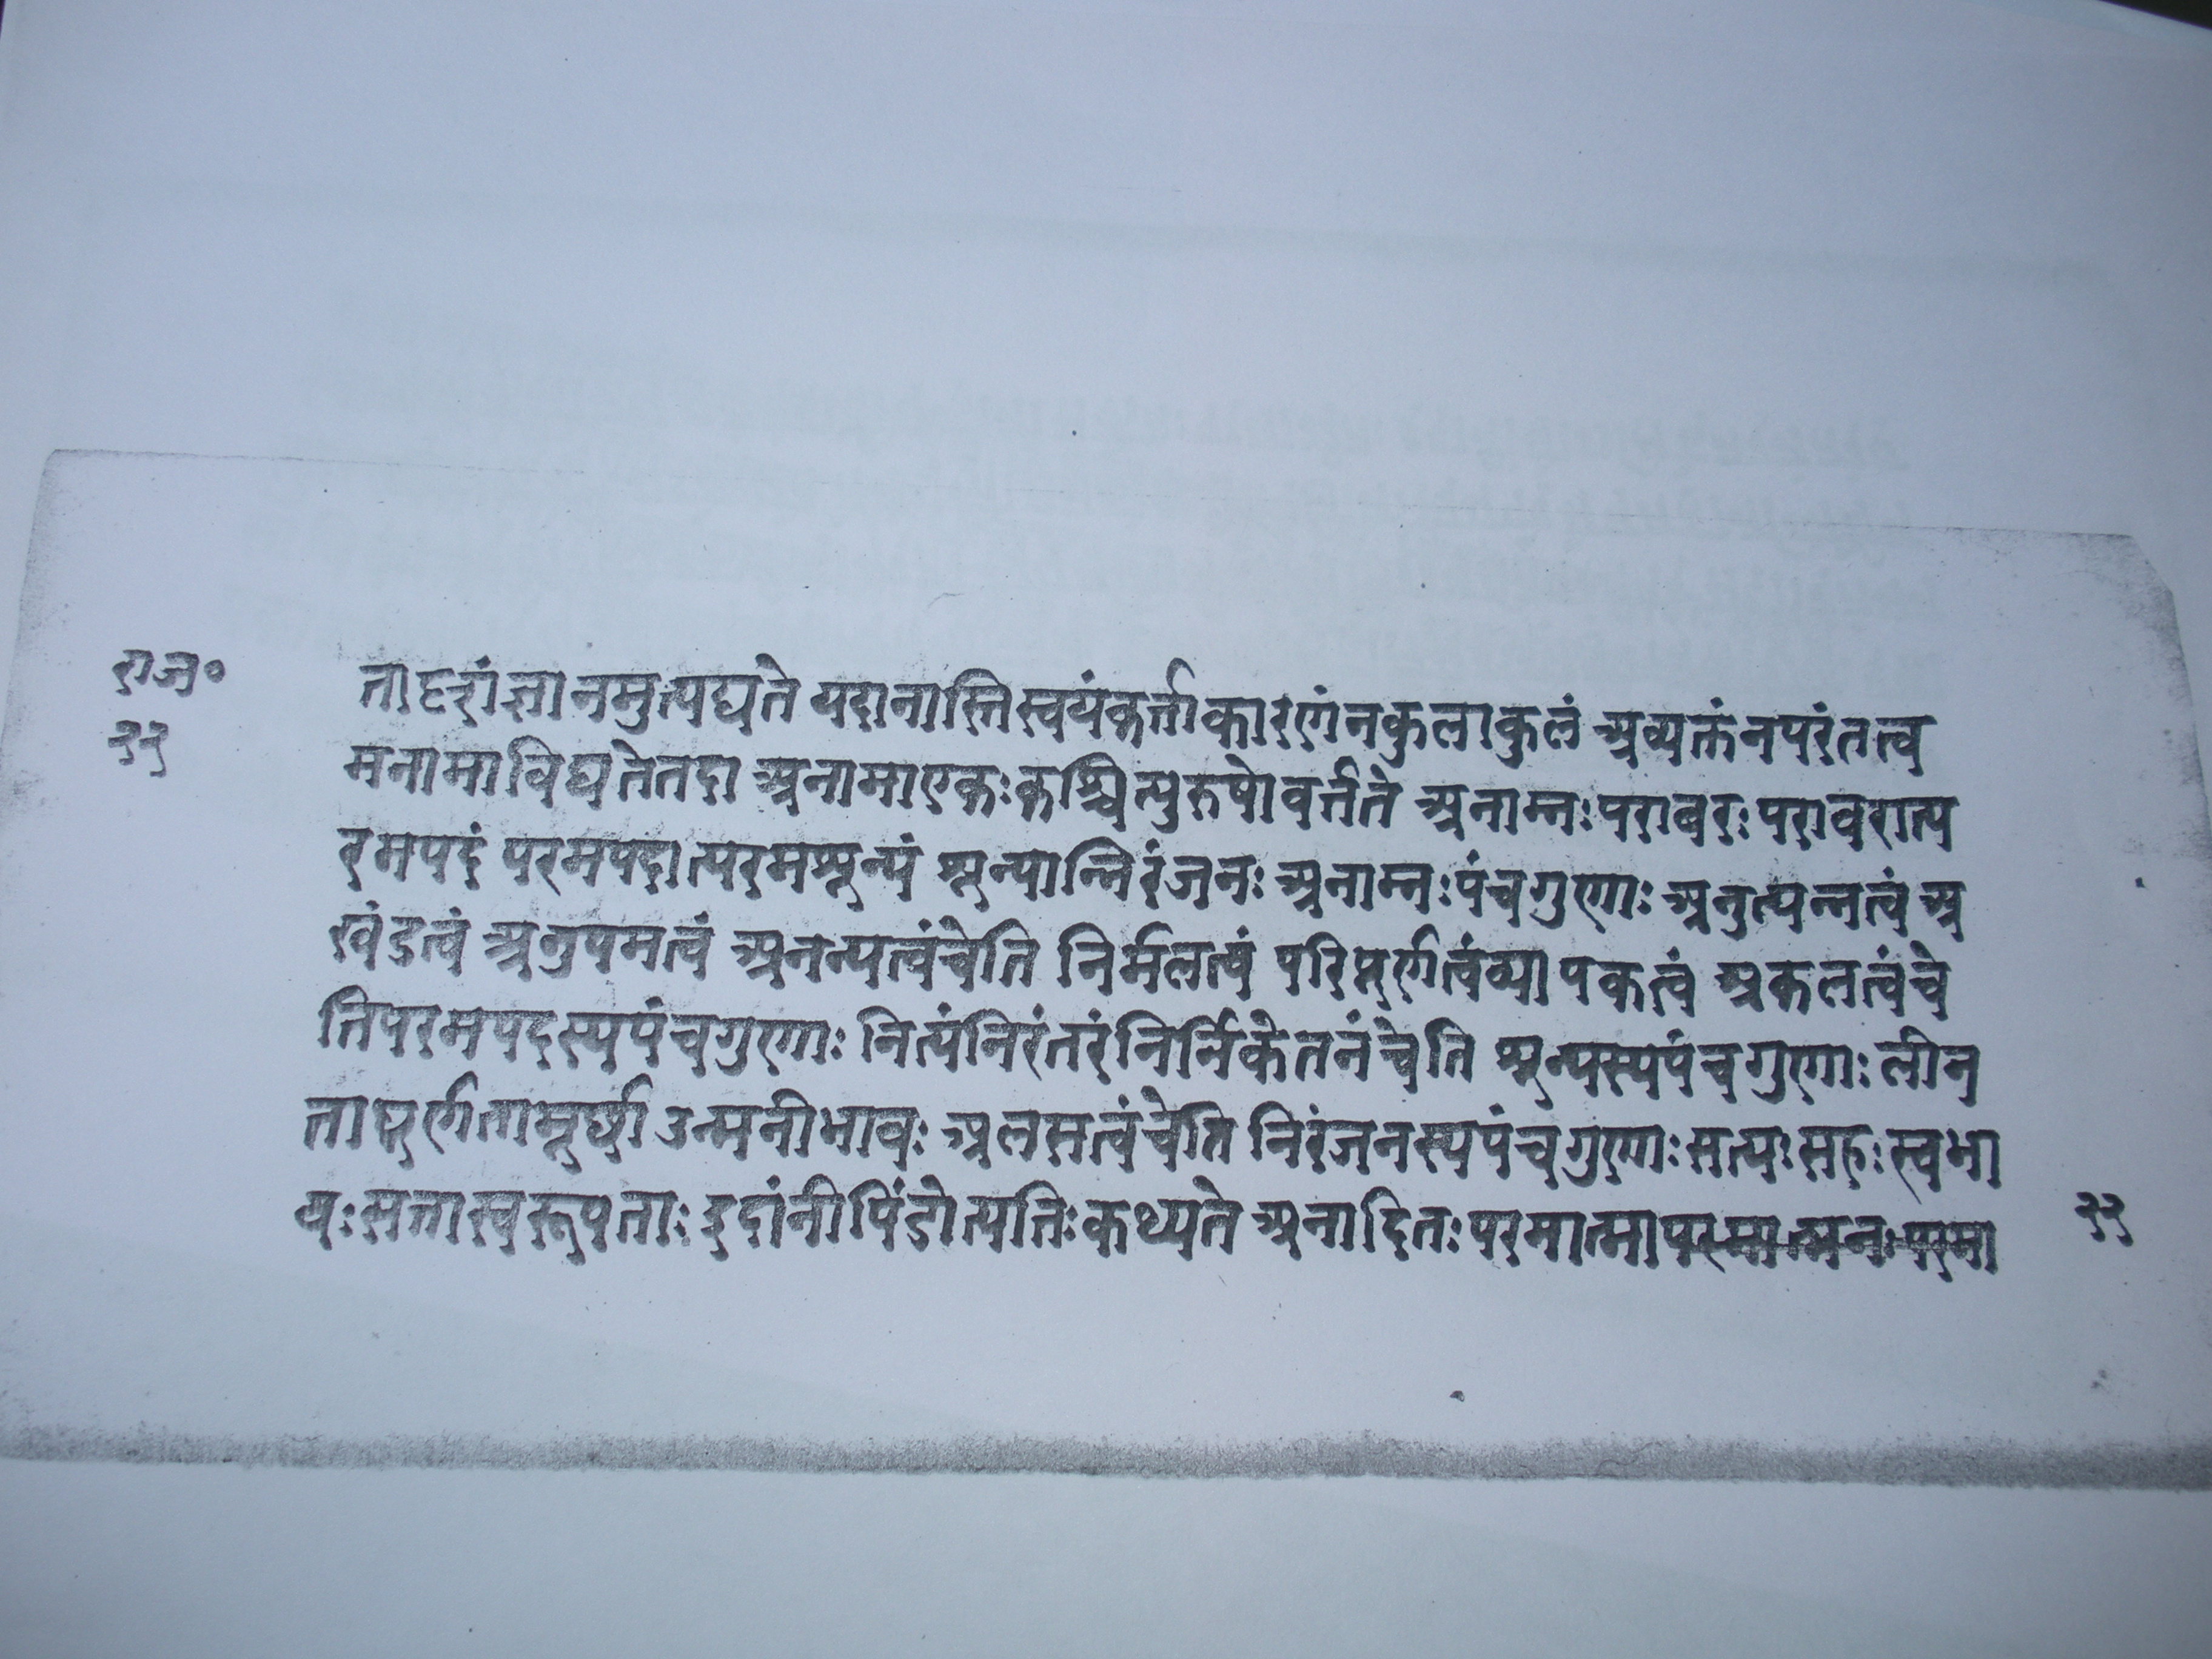 राज॰
२२
तादृशंज्ञानमुत्पद्यते यदानास्तिस्वयंकर्त्ताकारणंनकुलाकुलं अव्यक्तंनपरंतत्व
मनामाविद्यतेतदा अनामाएकःकश्चित्पुरुषोवर्त्तते अनाम्नःपरावरः परावरात्प
रमपदं परमपदात्परमशून्यं शून्यान्निरंजनः अनाम्नःपंचगुणाः अनुत्पन्नत्वं अ
खंडत्वं अनुपमत्वं अनन्यत्वंचेति निर्मलत्वं परिपूर्णत्वंव्यापकत्वं अकलत्वंचे
तिपरमपदस्यपंचगुणाः नित्यंनिरंतरंनिर्निकेतनंचेति शून्यस्यपंचगुणाः लीन
तापूर्णतामूर्छा उन्मनीभावः अलसत्वंचेति निरंजनस्यपंचगुणाः सत्यः सहः स्वभा
यः सत्तास्वरूपताः इदांनीपिंडोत्पत्तिःकथ्यते अनादितः परमात्मापरमात्मनः परमा
२२